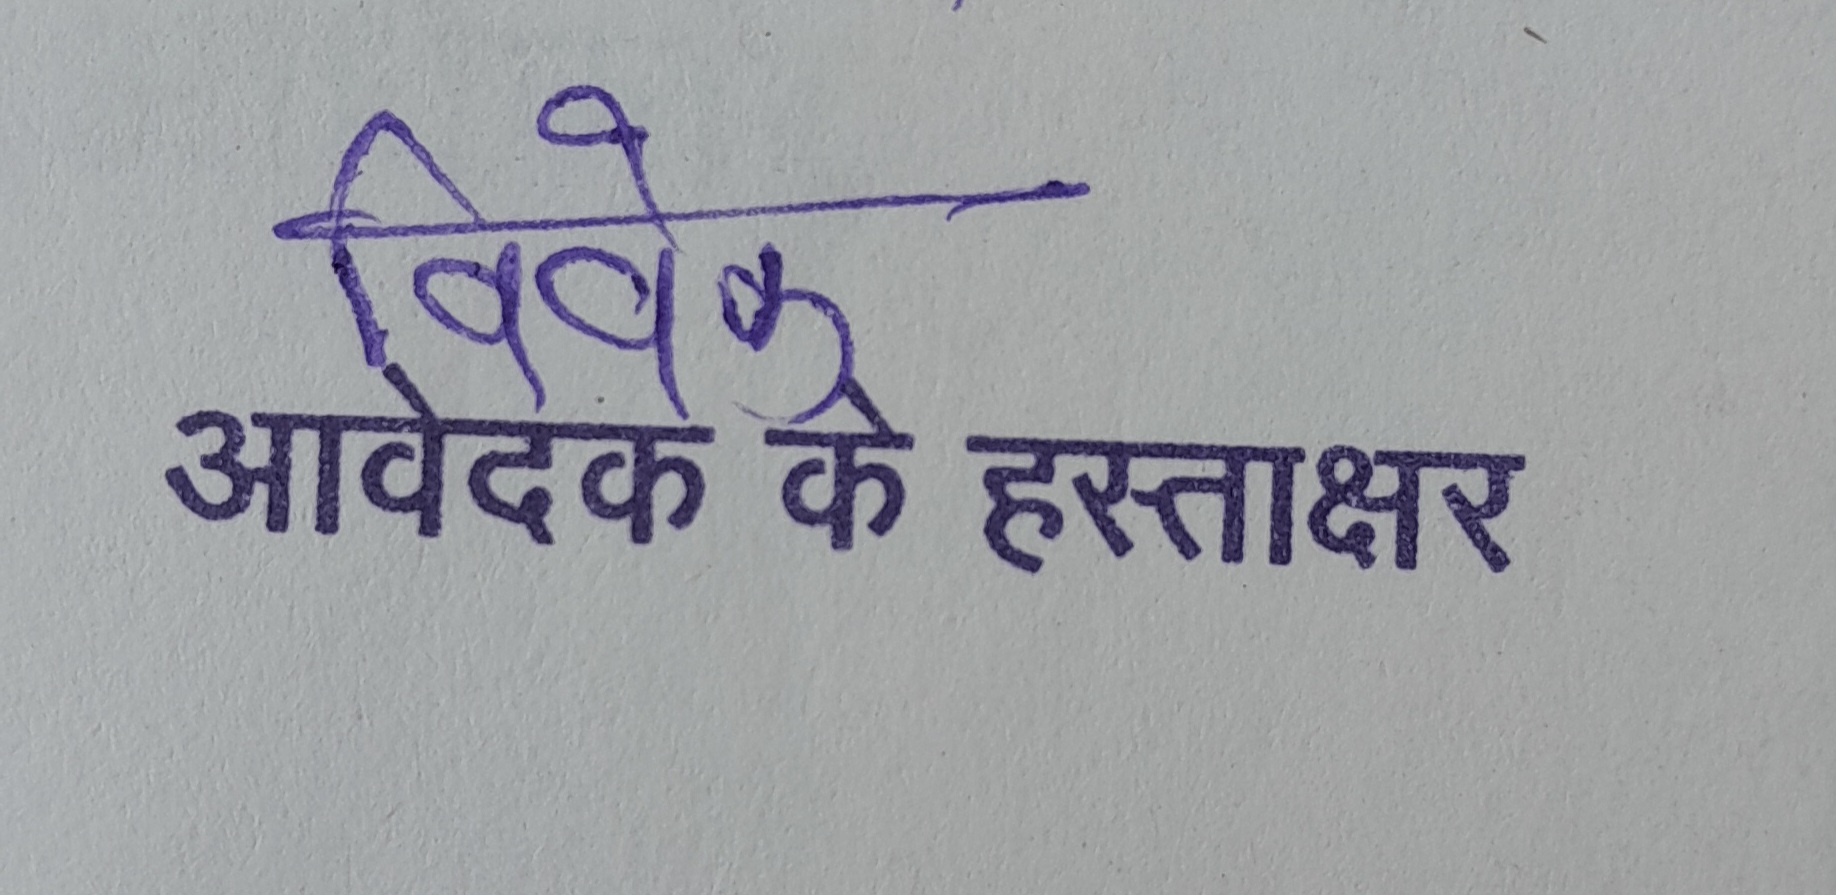 विवेक
आवेदक के हस्ताक्षर